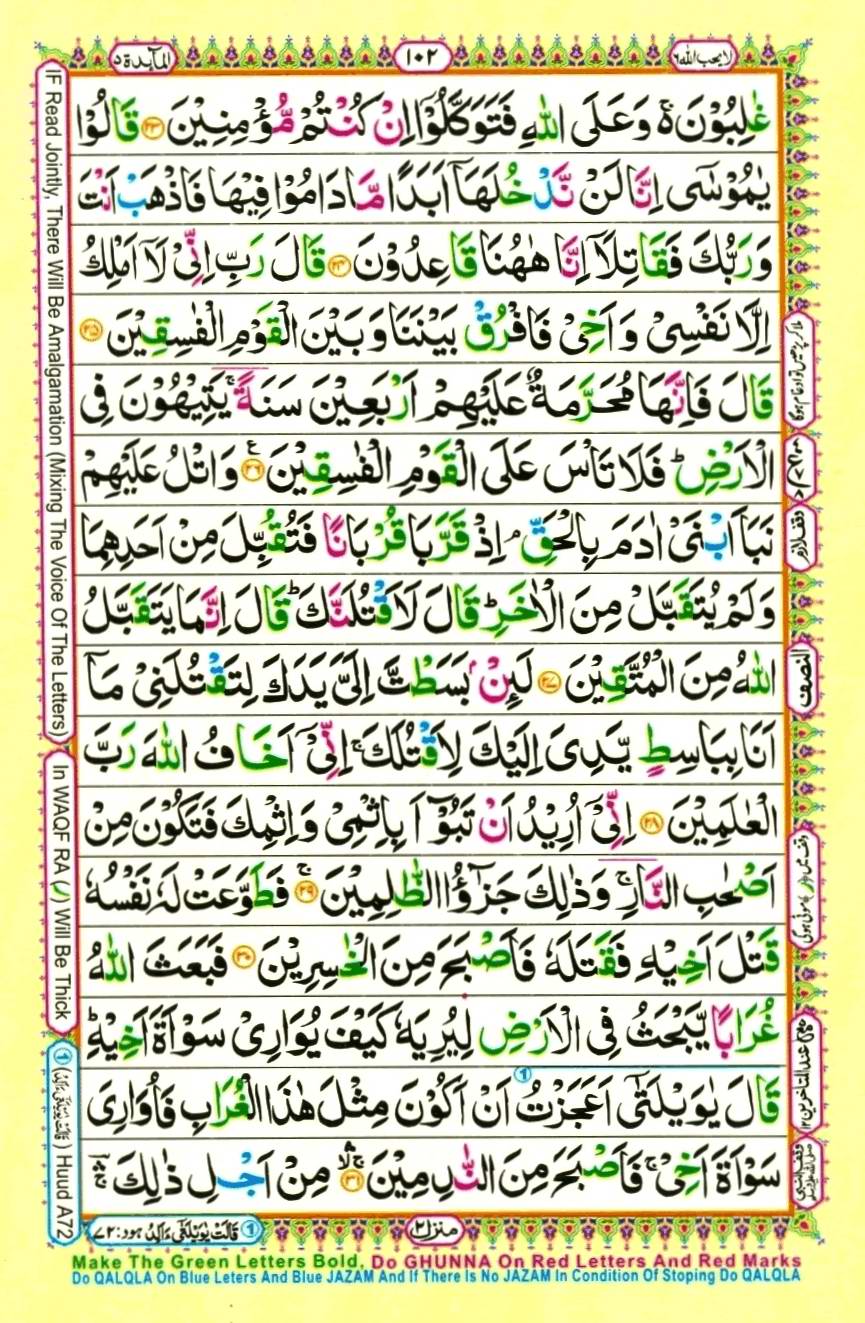 المآىدة ٥
١٠٢
لا يحب الله ٦
غٰلِبُوْنَ ۚ۬ وَعَلَى اللّٰهِ فَتَوَكَّلُوْۤا اِنْ كُنْتُمْ مُّؤْمِنِيْنَ ﴿۲۳﴾ قَالُوْا
يٰمُوْسٰۤى اِنَّا لَنْ نَّدْخُلَهَاۤ اَبَدًا مَّا دَامُوْا فِيْهَا فَاذْهَبْ اَنْتَ
وَرَبُّكَ فَقَاتِلَاۤ اِنَّا هٰهُنَا قَاعِدُوْنَ ﴿۲۴﴾ قَالَ رَبِّ اِنِّيْ لَاۤ اَمْلِكُ
اِلَّا نَفْسِيْ وَاَخِيْ فَافْرُقْ بَيْنَنَا وَبَيْنَ الْقَوْمِ الْفٰسِقِيْنَ ﴿۲۵﴾
قَالَ فَاِنَّهَا مُحَرَّمَةٌ عَلَيْهِمْ اَرْبَعِيْنَ سَنَةً ۚ يَتِيْهُوْنَ فِي
الْاَرْضِ ؕ فَلَا تَاْسَ عَلَى الْقَوْمِ الْفٰسِقِيْنَ ﴿۲۶﴾ ع وَاتْلُ عَلَيْهِمْ
نَبَاَ ابْنَيْ اٰدَمَ بِالْحَقِّ ۘ اِذْ قَرَّبَا قُرْبَانًا فَتُقُبِّلَ مِنْ اَحَدِهِمَا
وَلَمْ يُتَقَبَّلْ مِنَ الْاٰخَرِ ؕ قَالَ لَاَقْتُلَنَّكَ ؕ قَالَ اِنَّمَا يَتَقَبَّلُ
اللّٰهُ مِنَ الْمُتَّقِيْنَ ﴿۲۷﴾ لَئِنْۢ بَسَطْتَّ اِلَيَّ يَدَكَ لِتَقْتُلَنِيْ مَاۤ
اَنَا بِبَاسِطٍ يَّدِيَ اِلَيْكَ لِاَقْتُلَكَ ۚ اِنِّيْۤ اَخَافُ اللّٰهَ رَبَّ
الْعٰلَمِيْنَ ﴿۲۸﴾ اِنِّيْۤ اُرِيْدُ اَنْ تَبُوْٓاَ بِاِثْمِيْ وَاِثْمِكَ فَتَكُوْنَ مِنْ
اَصْحٰبِ النَّارِ ۚ وَذٰلِكَ جَزٰٓؤُا الظّٰلِمِيْنَ ﴿۲۹﴾ ۚ فَطَوَّعَتْ لَهٗ نَفْسُهٗ
قَتْلَ اَخِيْهِ فَقَتَلَهٗ فَاَصْبَحَ مِنَ الْخٰسِرِيْنَ ﴿۳۰﴾ فَبَعَثَ اللّٰهُ
غُرَابًا يَّبْحَثُ فِي الْاَرْضِ لِيُرِيَهٗ كَيْفَ يُوَارِيْ سَوْاَةَ اَخِيْهِ ؕ
قَالَ يٰوَيْلَتٰۤى اَعَجَزْتُ اَنْ اَكُوْنَ مِثْلَ هٰذَا الْغُرَابِ فَاُوَارِيَ
سَوْاَةَ اَخِيْ ۚ فَاَصْبَحَ مِنَ النّٰدِمِيْنَ ﴿۳۱﴾ مِنْ اَجْلِ ذٰلِكَ
منزل ٢
١ قَالَتْ يٰوَيْلَتٰٓى ءَاَلِدُ هود: ٧٢
وقف لازم
النصف
IF Read Jointly, There Will Be Amalgamation (Mixing The Voice Of The Letters)
In WAQF RA (ر) Will Be Thick
١ (قَالَتْ يٰوَيْلَتٰٓى ءَاَلِدُ) Huud A72
Make The Green Letters Bold, Do GHUNNA On Red Letters And Red Marks
Do QALQLA On Blue Leters And Blue JAZAM And If There Is No JAZAM In Condition Of Stoping Do QALQLA